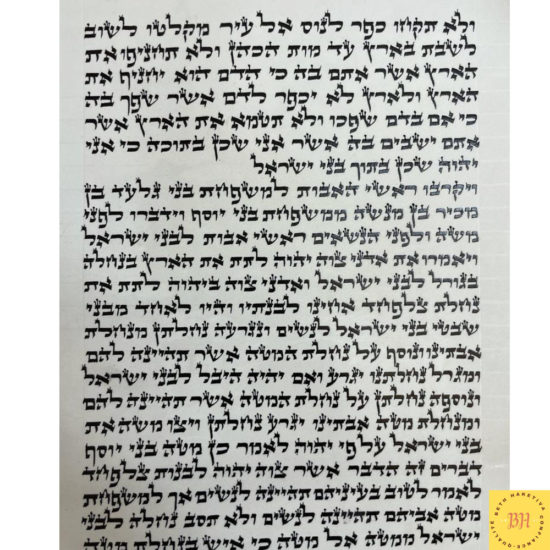 ולא תקחו כפר לנוס אל עיר מקלטו לשוב
לשבת בארץ עד מות הכהן ולא תחניפו את
הארץ אשר אתם בה כי הדם הוא יחניף את
הארץ ולארץ לא יכפר לדם אשר שפך בה
כי אם בדם שפכו ולא תטמא את הארץ אשר
אתם ישבים בה אשר אני שכן בתוכה כי אני
יהוה שכן בתוך בני ישראל
ויקרבו ראשי האבות למשפחת בני גלעד בן
מכיר בן מנשה ממשפחת בני יוסף וידברו לפני
משה ולפני הנשאים ראשי אבות לבני ישראל
ויאמרו את אדני צוה יהוה לתת את הארץ בנחלה
בגורל לבני ישראל ואדני צוה ביהוה לתת את
נחלת צלפחד אחינו לבנתיו והיו לאחד מבני
שבטי בני ישראל לנשים ונגרעה נחלתן מנחלת
אבתינו ונוסף על נחלת המטה אשר תהיינה להם
ומגרל נחלתנו יגרע ואם יהיה היבל לבני ישראל
ונוספה נחלתן על נחלת המטה אשר תהיינה להם
ומנחלת מטה אבתינו יגרע נחלתן ויצו משה את
בני ישראל על פי יהוה לאמר כן מטה בני יוסף
דברים זה הדבר אשר צוה יהוה לבנות צלפחד
לאמר לטוב בעיניהם תהיינה לנשים אך למשפחת
מטה אביהם תהיינה לנשים ולא תסב נחלה לבני
ישראל ממטה אל מטה כי איש בנחלת מטה
BETH HAKETIVA CONFIANCE-QUALITE
BH